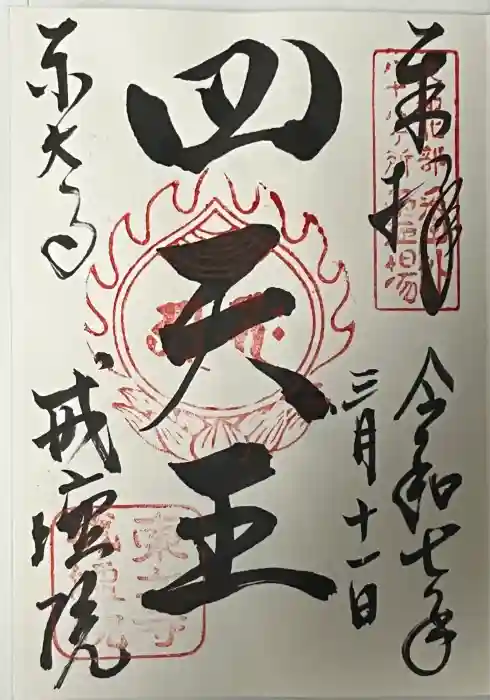 奉拝
令和七年
三月十一日
四天王
東大寺
戒壇院
東大寺
戒壇院